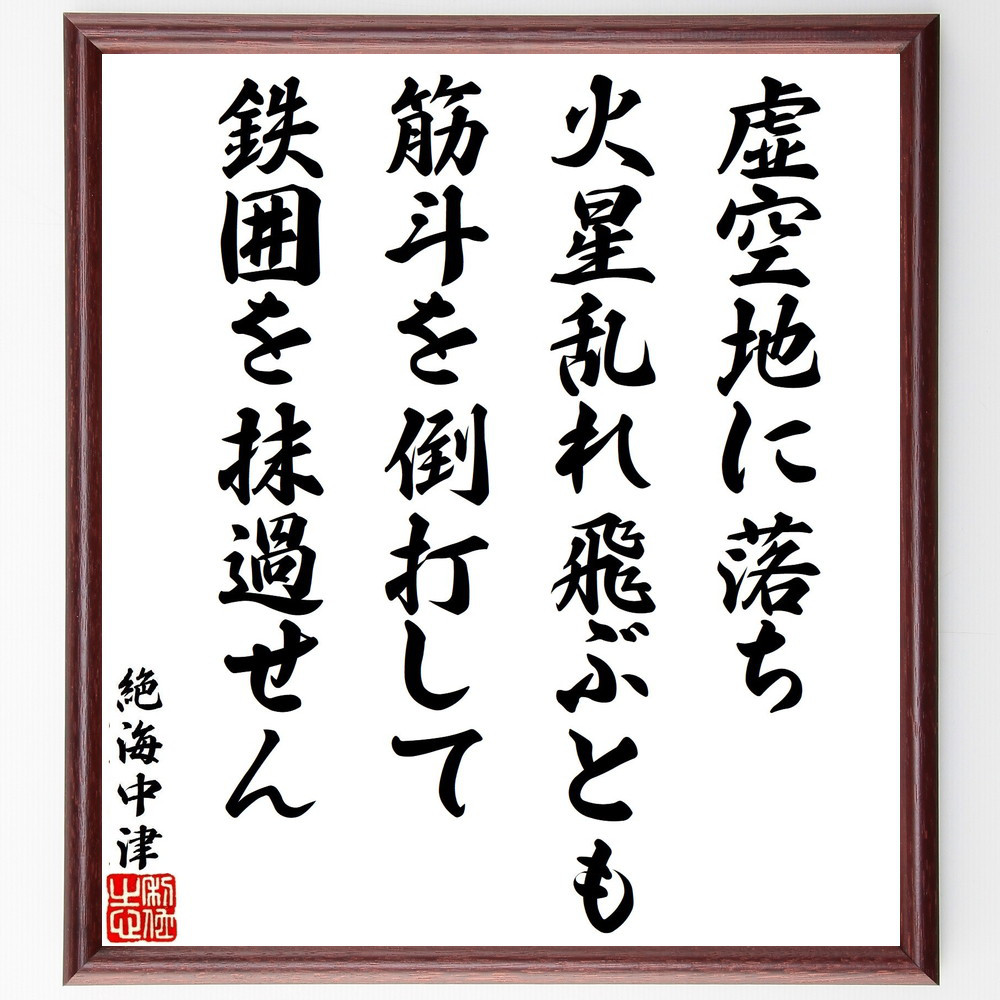 虚空地に落ち
火星乱れ飛ぶとも
筋斗を倒打して
鉄囲を抹過せん
絶海中津